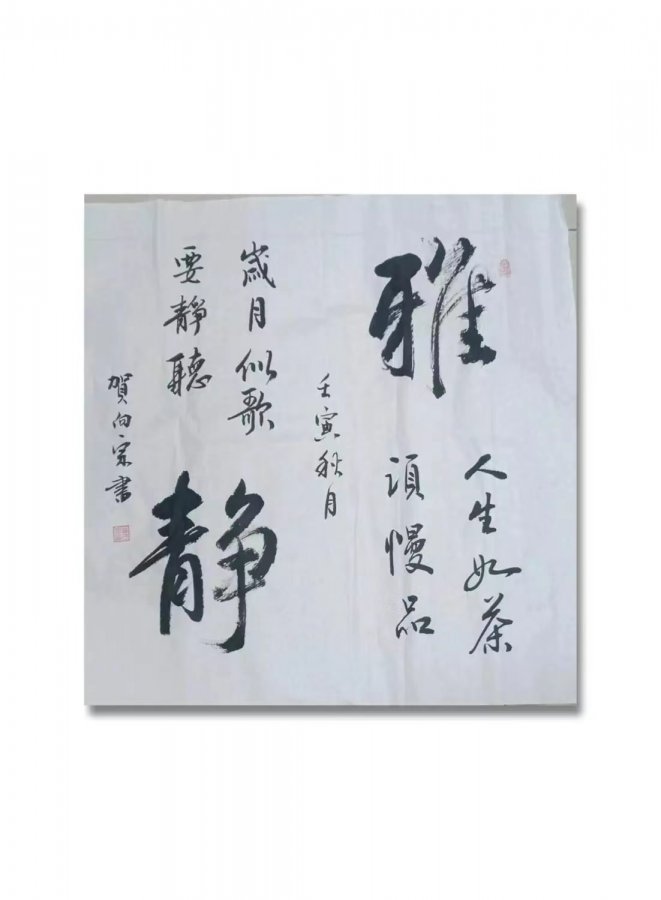 雅
人生如茶
須慢品
壬寅秋月
歲月似歌
要靜聽
静
賀向宗書